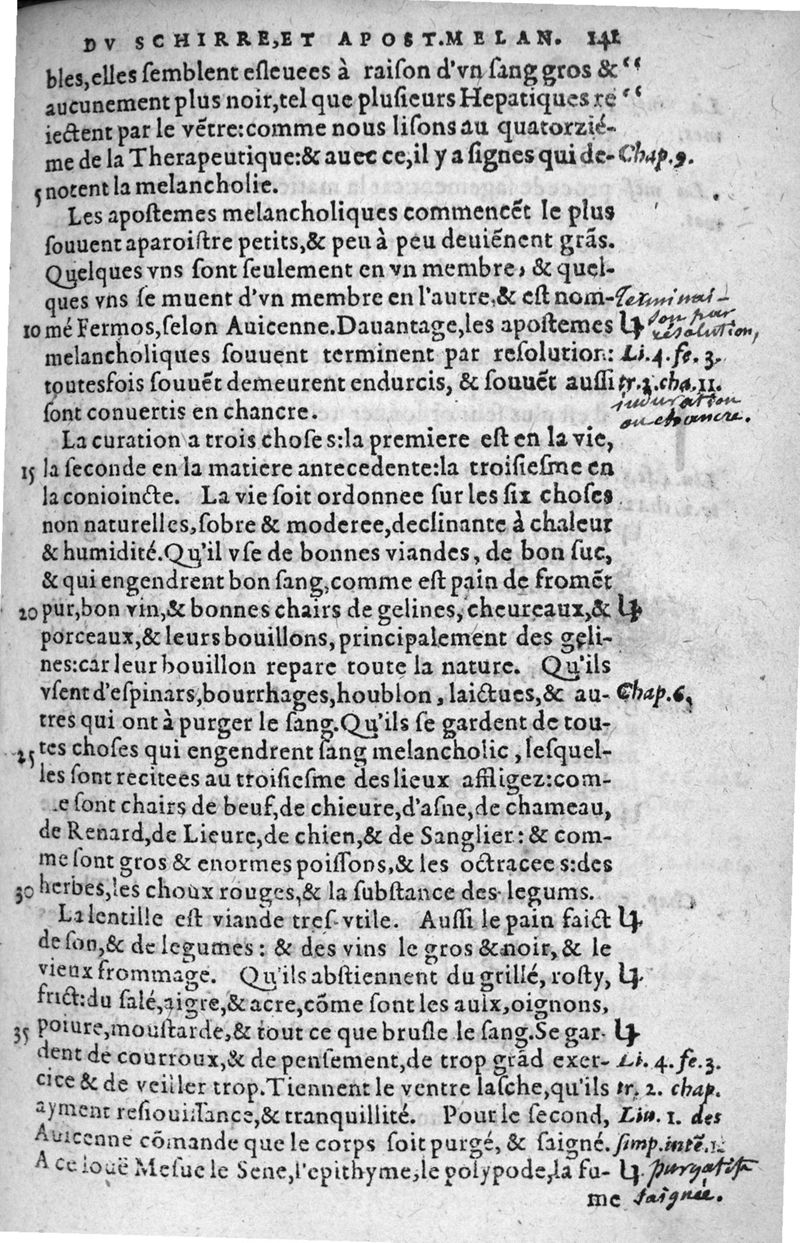 DV SCHIRRE, ET APOST. MELAN. 141
bles, elles ſemblent eſleuees à raiſon d'vn ſang gros & “
aucunement plus noir, tel que pluſieurs Hepatiques re “
iectent par le vẽtre: comme nous liſons au quatorzié-
me de la Therapeutique: & auec ce, il y a ſignes qui de- Chap. 9.
5 notent la melancholie.
Les apoſtemes melancholiques commencẽt le plus
ſouuent aparoiſtre petits, & peu à peu deuiẽnent grãs.
Quelques vns ſont ſeulement en vn membre, & quel-
ques vns ſe muent d'vn membre en l'autre, & eſt nom- Terminai-
10 mé Fermos, ſelon Auicenne. Dauantage, les apoſtemes son par resolution,
melancholiques ſouuent terminent par reſolution: Li. 4. fe. 3.
toutesfois ſouuẽt demeurent endurcis, & ſouuẽt auſſi tr. 3. cha. 11.
ſont conuertis en chancre. induration ou chancre.
La curation a trois choſes: la premiere eſt en la vie,
15 la ſeconde en la matiere antecedente: la troiſieſme en
la conioincte. La vie ſoit ordonnee ſur les ſix choſes
non naturelles, ſobre & moderee, declinante à chaleur
& humidité. Qu'il vſe de bonnes viandes, de bon ſuc,
& qui engendrent bon ſang, comme eſt pain de fromẽt
20 pur, bon vin, & bonnes chairs de gelines, cheureaux, &
porceaux, & leurs bouillons, principalement des geli-
nes: car leur bouillon repare toute la nature. Qu'ils
vſent d'eſpinars, bourrhages, houblon, laictues, & au- Chap. 6,
tres qui ont à purger le ſang. Qu'ils ſe gardent de tou-
25 tes choſes qui engendrent ſang melancholic, leſquel-
les ſont recitees au troiſieſme des lieux affligez: com-
e ſont chairs de beuf, de chieure, d'aſne, de chameau,
de Renard, de Lieure, de chien, & de Sanglier: & com-
me ſont gros & enormes poiſſons, & les octracees: des
30 herbes, les choux rouges, & la ſubſtance des legums.
La lentille eſt viande treſ-vtile. Auſſi le pain faict
de ſon, & de legumes: & des vins le gros & noir, & le
vieux frommage. Qu'ils abſtiennent du grillé, roſty,
frict: du ſalé, aigre, & acre, cõme ſont les aulx, oignons,
35 poiure, mouſtarde, & tout ce que bruſle le ſang. Se gar-
dent de courroux, & de penſement, de trop grãd exer- Li. 4. fe. 3.
cice & de veiller trop. Tiennent le ventre laſche, qu'ils tr. 2. chap.
ayment reſiouiſſance, & tranquillité. Pour le ſecond, Liu. 1. des
Auicenne cõmande que le corps ſoit purgé, & ſaigné. ſimp. intẽ. 1.
A ce louë Meſue le Sene, l'epithyme, le polypode, la fu-
me saignee.